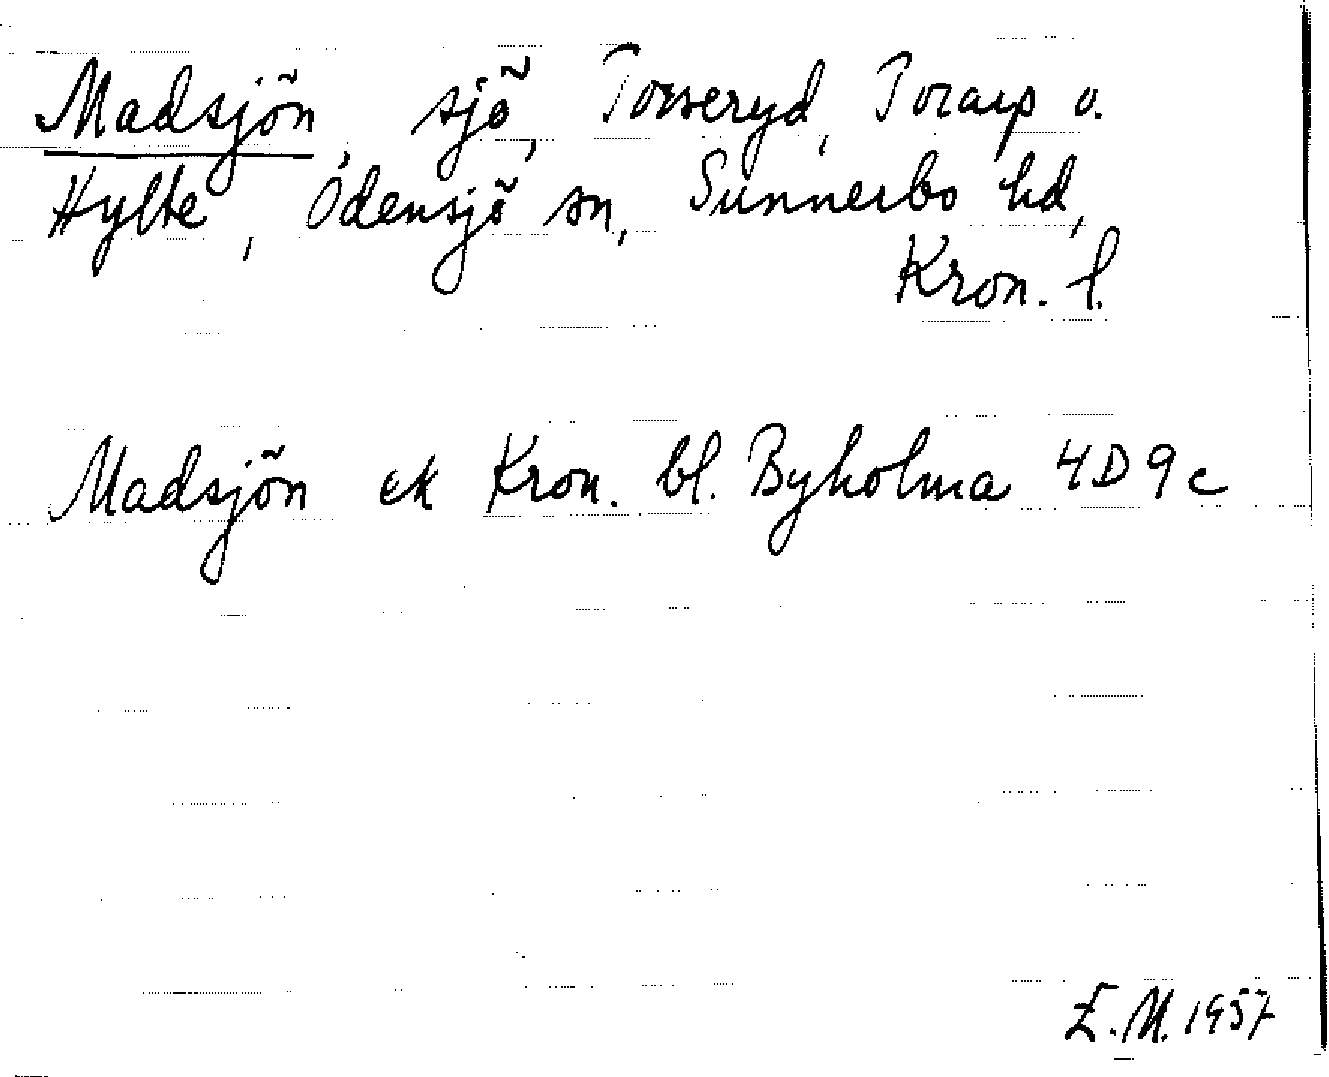 Madsjön, sjö, Torseryd, Torarp o.
Hylte, Odensjö sn, Sunnerbo hd,
Kron. l.
Madsjön ek Kron. bl. Byholma 4D9c
E.M. 1957